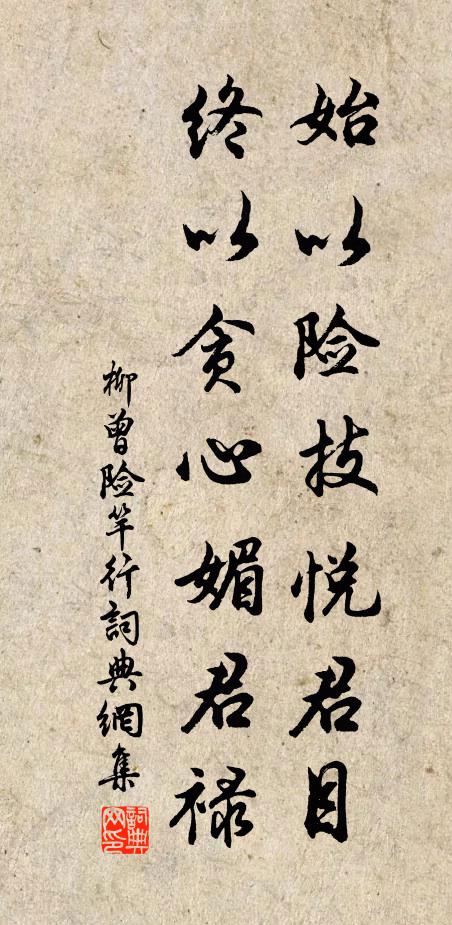 始以险技悦君目
终以贪心媚君禄
柳曾险竿行詞典網集
詞典
网印